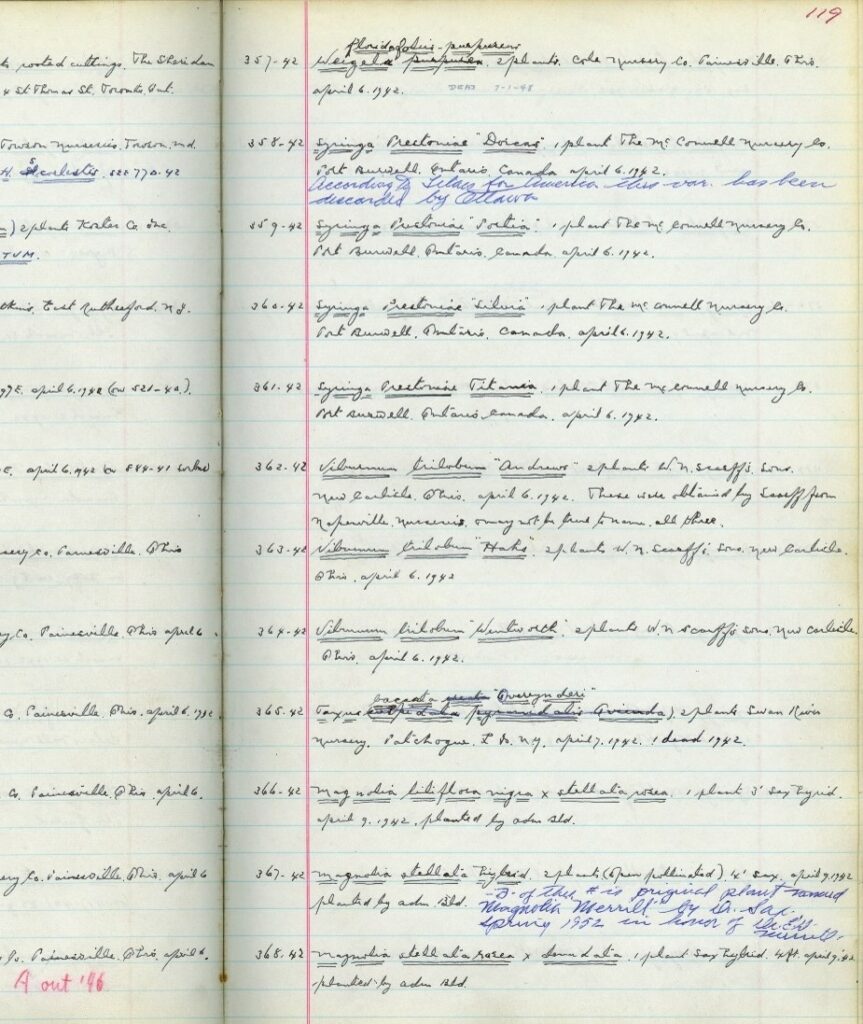 rooted cuttings. The Sheridan
St. Thomas St. Toronto, Ont.
Towson Nurseries, Towson, Md.
see 770-42
) 2 plants Koster Co. Inc.
TUM.
East Rutherford, N.J.
April 6, 1942 (or 521-40).
April 6, 1942 or 844-41
Co. Painesville, Ohio
Co. Painesville, Ohio April 6
Co. Painesville, Ohio. April 6, 1942
Co. Painesville, Ohio. April 6.
Co. Painesville, Ohio. April 6
Co. Painesville, Ohio, April 6.
A out '46
119
purpurea
357-42 Weigela purpurea, 2 plants. Cole Nursery Co. Painesville, Ohio.
April 6, 1942. DEAD 7-1-48
358-42 Syringa Prestoniae "Dorcas", 1 plant The McConnell Nursery Co.
Port Burwell, Ontario, Canada April 6, 1942.
According to Lilacs for America this var. has been
discarded by Ottawa
359-42 Syringa Prestoniae "Portia", 1 plant The McConnell Nursery Co.
Port Burwell, Ontario, Canada, April 6, 1942.
360-42 Syringa Prestoniae "Silvia", 1 plant The McConnell Nursery Co.
Port Burwell, Ontario, Canada, April 6, 1942.
361-42 Syringa Prestoniae Titania, 1 plant The McConnell Nursery Co.
Port Burwell, Ontario, Canada, April 6, 1942.
362-42 Viburnum trilobum "Andrews" 2 plants W. N. Scarff's Sons.
New Carlisle, Ohio. April 6, 1942. These were obtained by Scarff from
Naperville Nurseries & may not be true to name, all three.
363-42 Viburnum trilobum "Hahs", 2 plants W. N. Scarff's Sons. New Carlisle.
Ohio, April 6, 1942
364-42 Viburnum trilobum "Wentworth", 2 plants W. N. Scarff's Sons, New Carlisle
Ohio, April 6, 1942.
baccata "Overeynderi"
365-42 Taxus (cuspidata pyramidalis), 2 plants Swan River
Nursery, Patchogue, L.I. N.Y. April 7, 1942. 1 dead 1942.
366-42 Magnolia liliflora nigra x stellata rosea. 1 plant 3' Sax hybrid.
April 9, 1942, planted by Adm Bld.
367-42 Magnolia stellata hybrid. 2 plants (open pollinated), 4' Sax. April 9, 1942
planted by Adm Bld. -B- of this # is original plant named
Magnolia "Merrill" by Dr. Sax
Spring 1952 in honor of Dr. E.D.
Merrill.
368-42 Magnolia stellata rosea x, 1 plant Sax hybrid. 4 ft. April 9, '42
planted by Adm Bld.